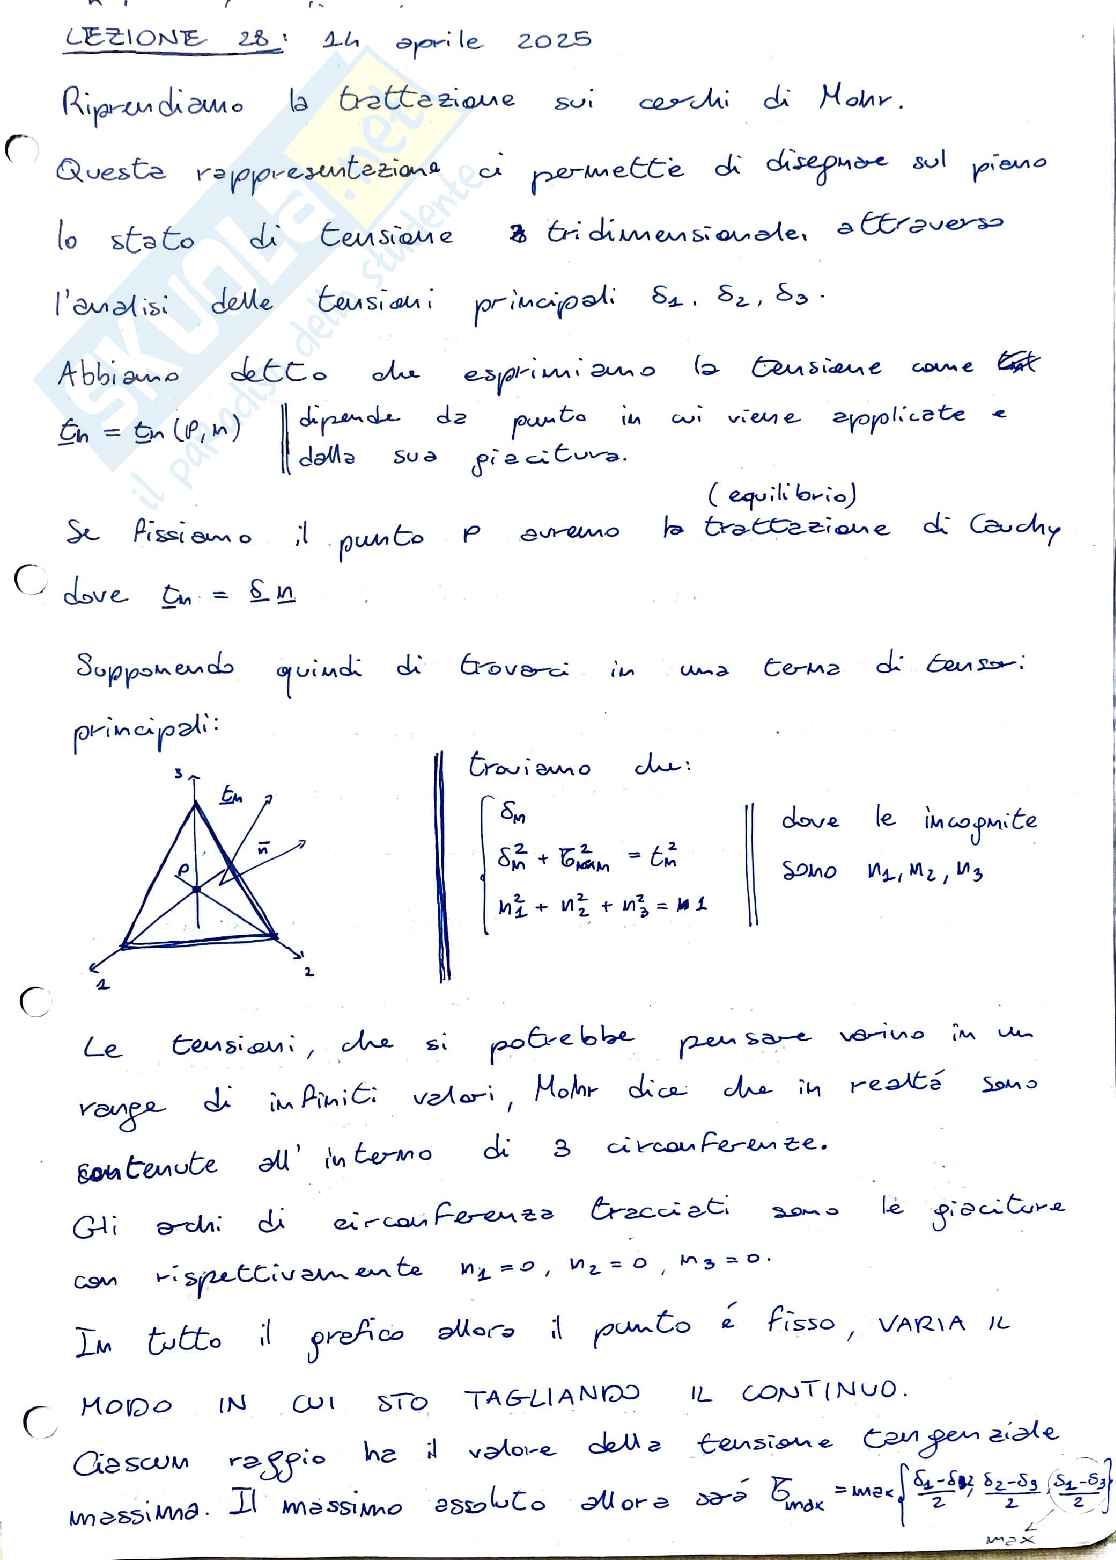 LEZIONE 28: 14 aprile 2025
Riprendiamo la trattazione sui cerchi di Mohr.
Questa rappresentazione ci permette di disegnare sul piano
lo stato di tensione tridimensionale, attraverso
l'analisi delle tensioni principali δ1, δ2, δ3.
Abbiamo detto che esprimiamo la tensione come
tn = tn (P, n) dipende da punto in cui viene applicata e
dalla sua giacitura.
(equilibrio)
Se fissiamo il punto P avremo la trattazione di Cauchy
dove tn = δ n
Supponendo quindi di trovarci in una terna di tensori
principali:
troviamo che:
3
tn
n
P
1
2
δn
δn² + τn² = tn²
n1² + n2² + n3² = 1
dove le incognite
sono n1, n2, n3
Le tensioni, che si potrebbe pensare varino in un
range di infiniti valori, Mohr dice che in realtá sono
contenute all'interno di 3 circonferenze.
Gli archi di circonferenza tracciati sono le giaciture
con rispettivamente n1=0, n2=0, n3=0.
In tutto il grafico allora il punto é fisso, VARIA IL
MODO IN CUI STO TAGLIANDO IL CONTINUO.
Ciascun raggio ha il valore della tensione tangenziale
massima. Il massimo assoluto allora sará τmax = max{δ1-δ2/2, δ2-δ3/2, δ1-δ3/2}
max
SKUOLA.net
il paradiso dello studente